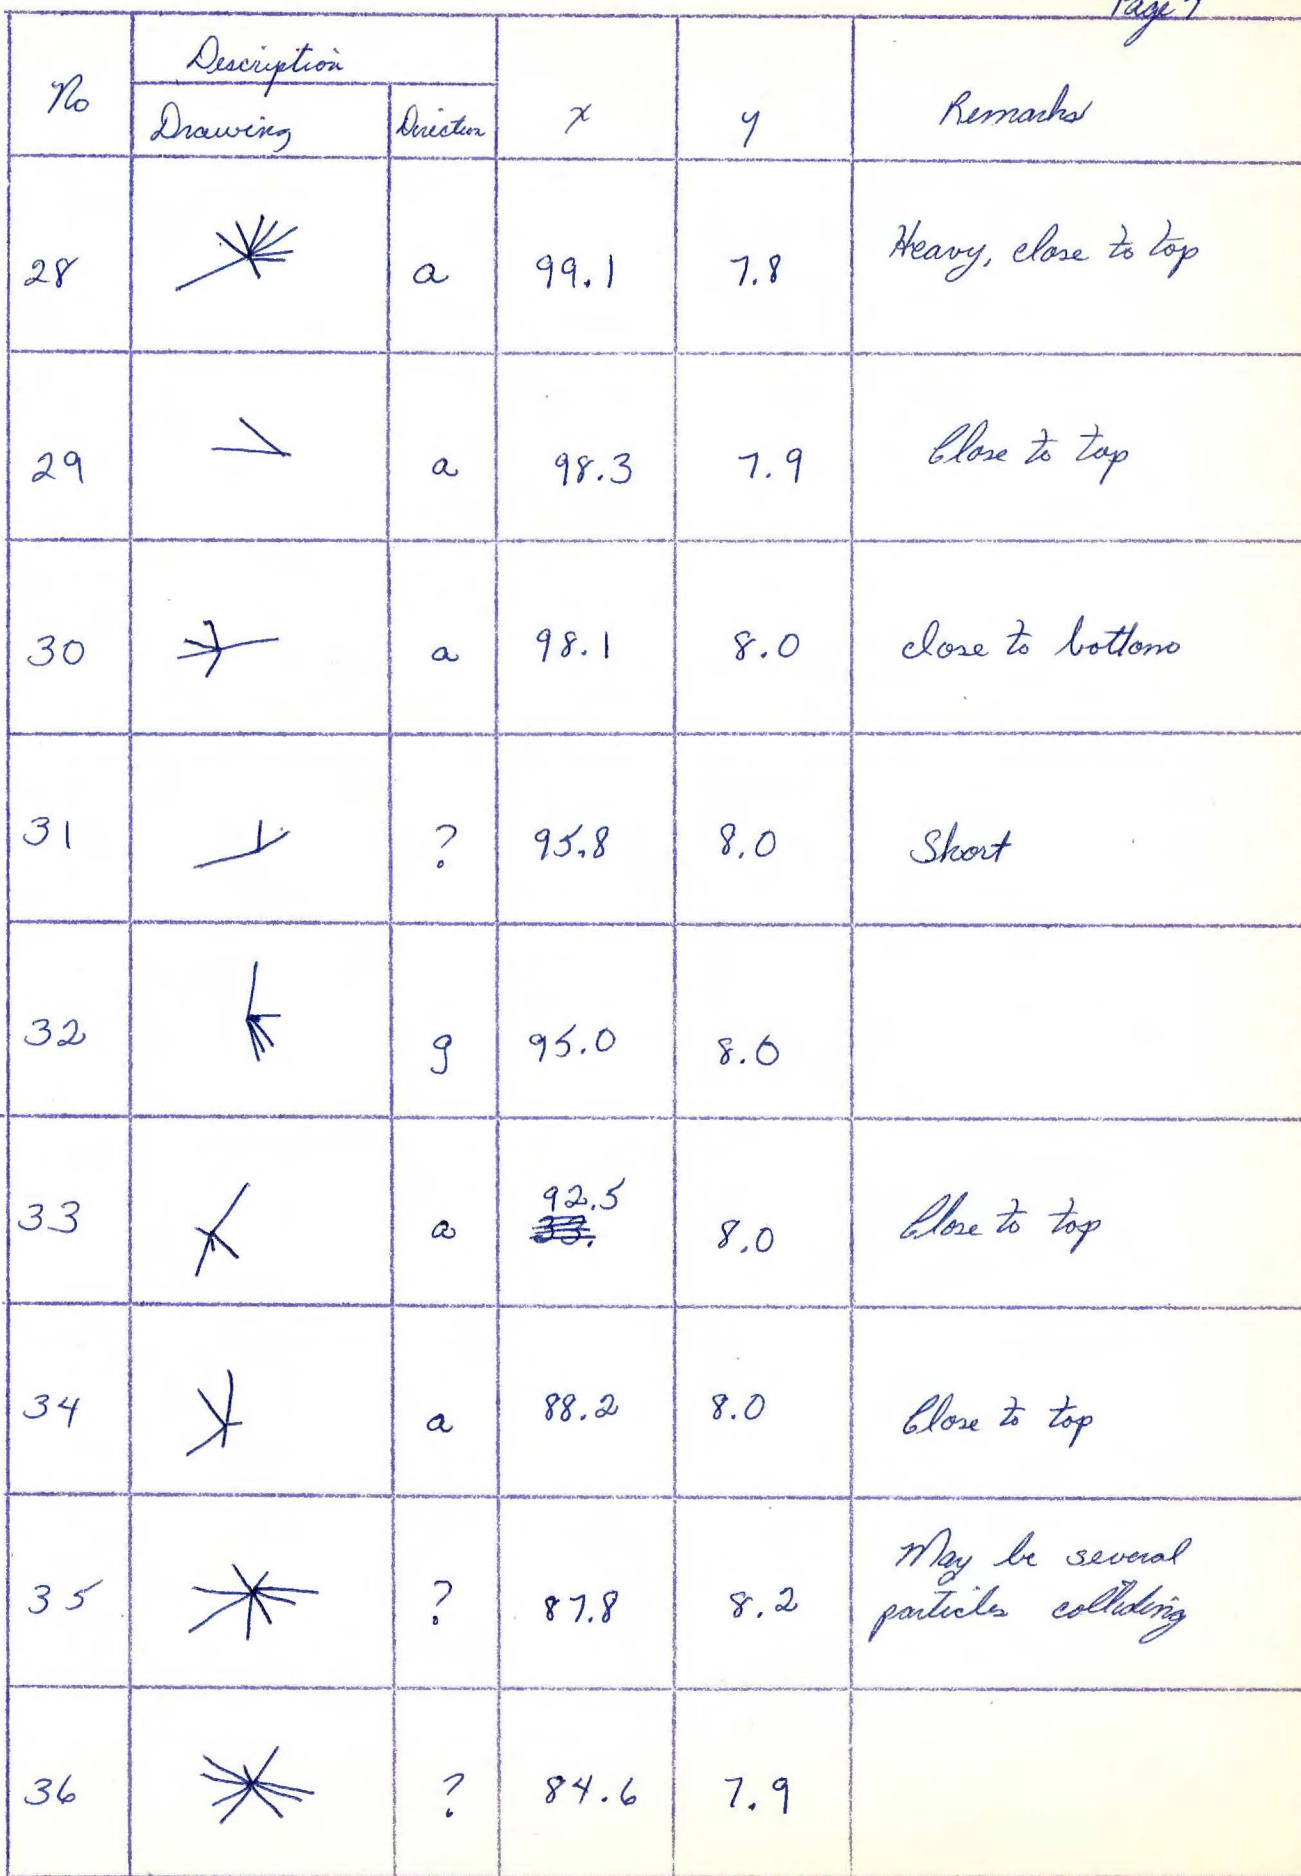 Page 7
Description
No
Drawing
Direction
x
y
Remarks
28 a 99.1 7.8 Heavy, close to top
29 a 98.3 7.9 Close to top
30 a 98.1 8.0 close to bottom
31 ? 95.8 8.0 Short
32 g 95.0 8.0
33 a 92.5 8.0 Close to top
33.
34 a 88.2 8.0 Close to top
35 ? 87.8 8.2 May be several
particles colliding
36 ? 84.6 7.9